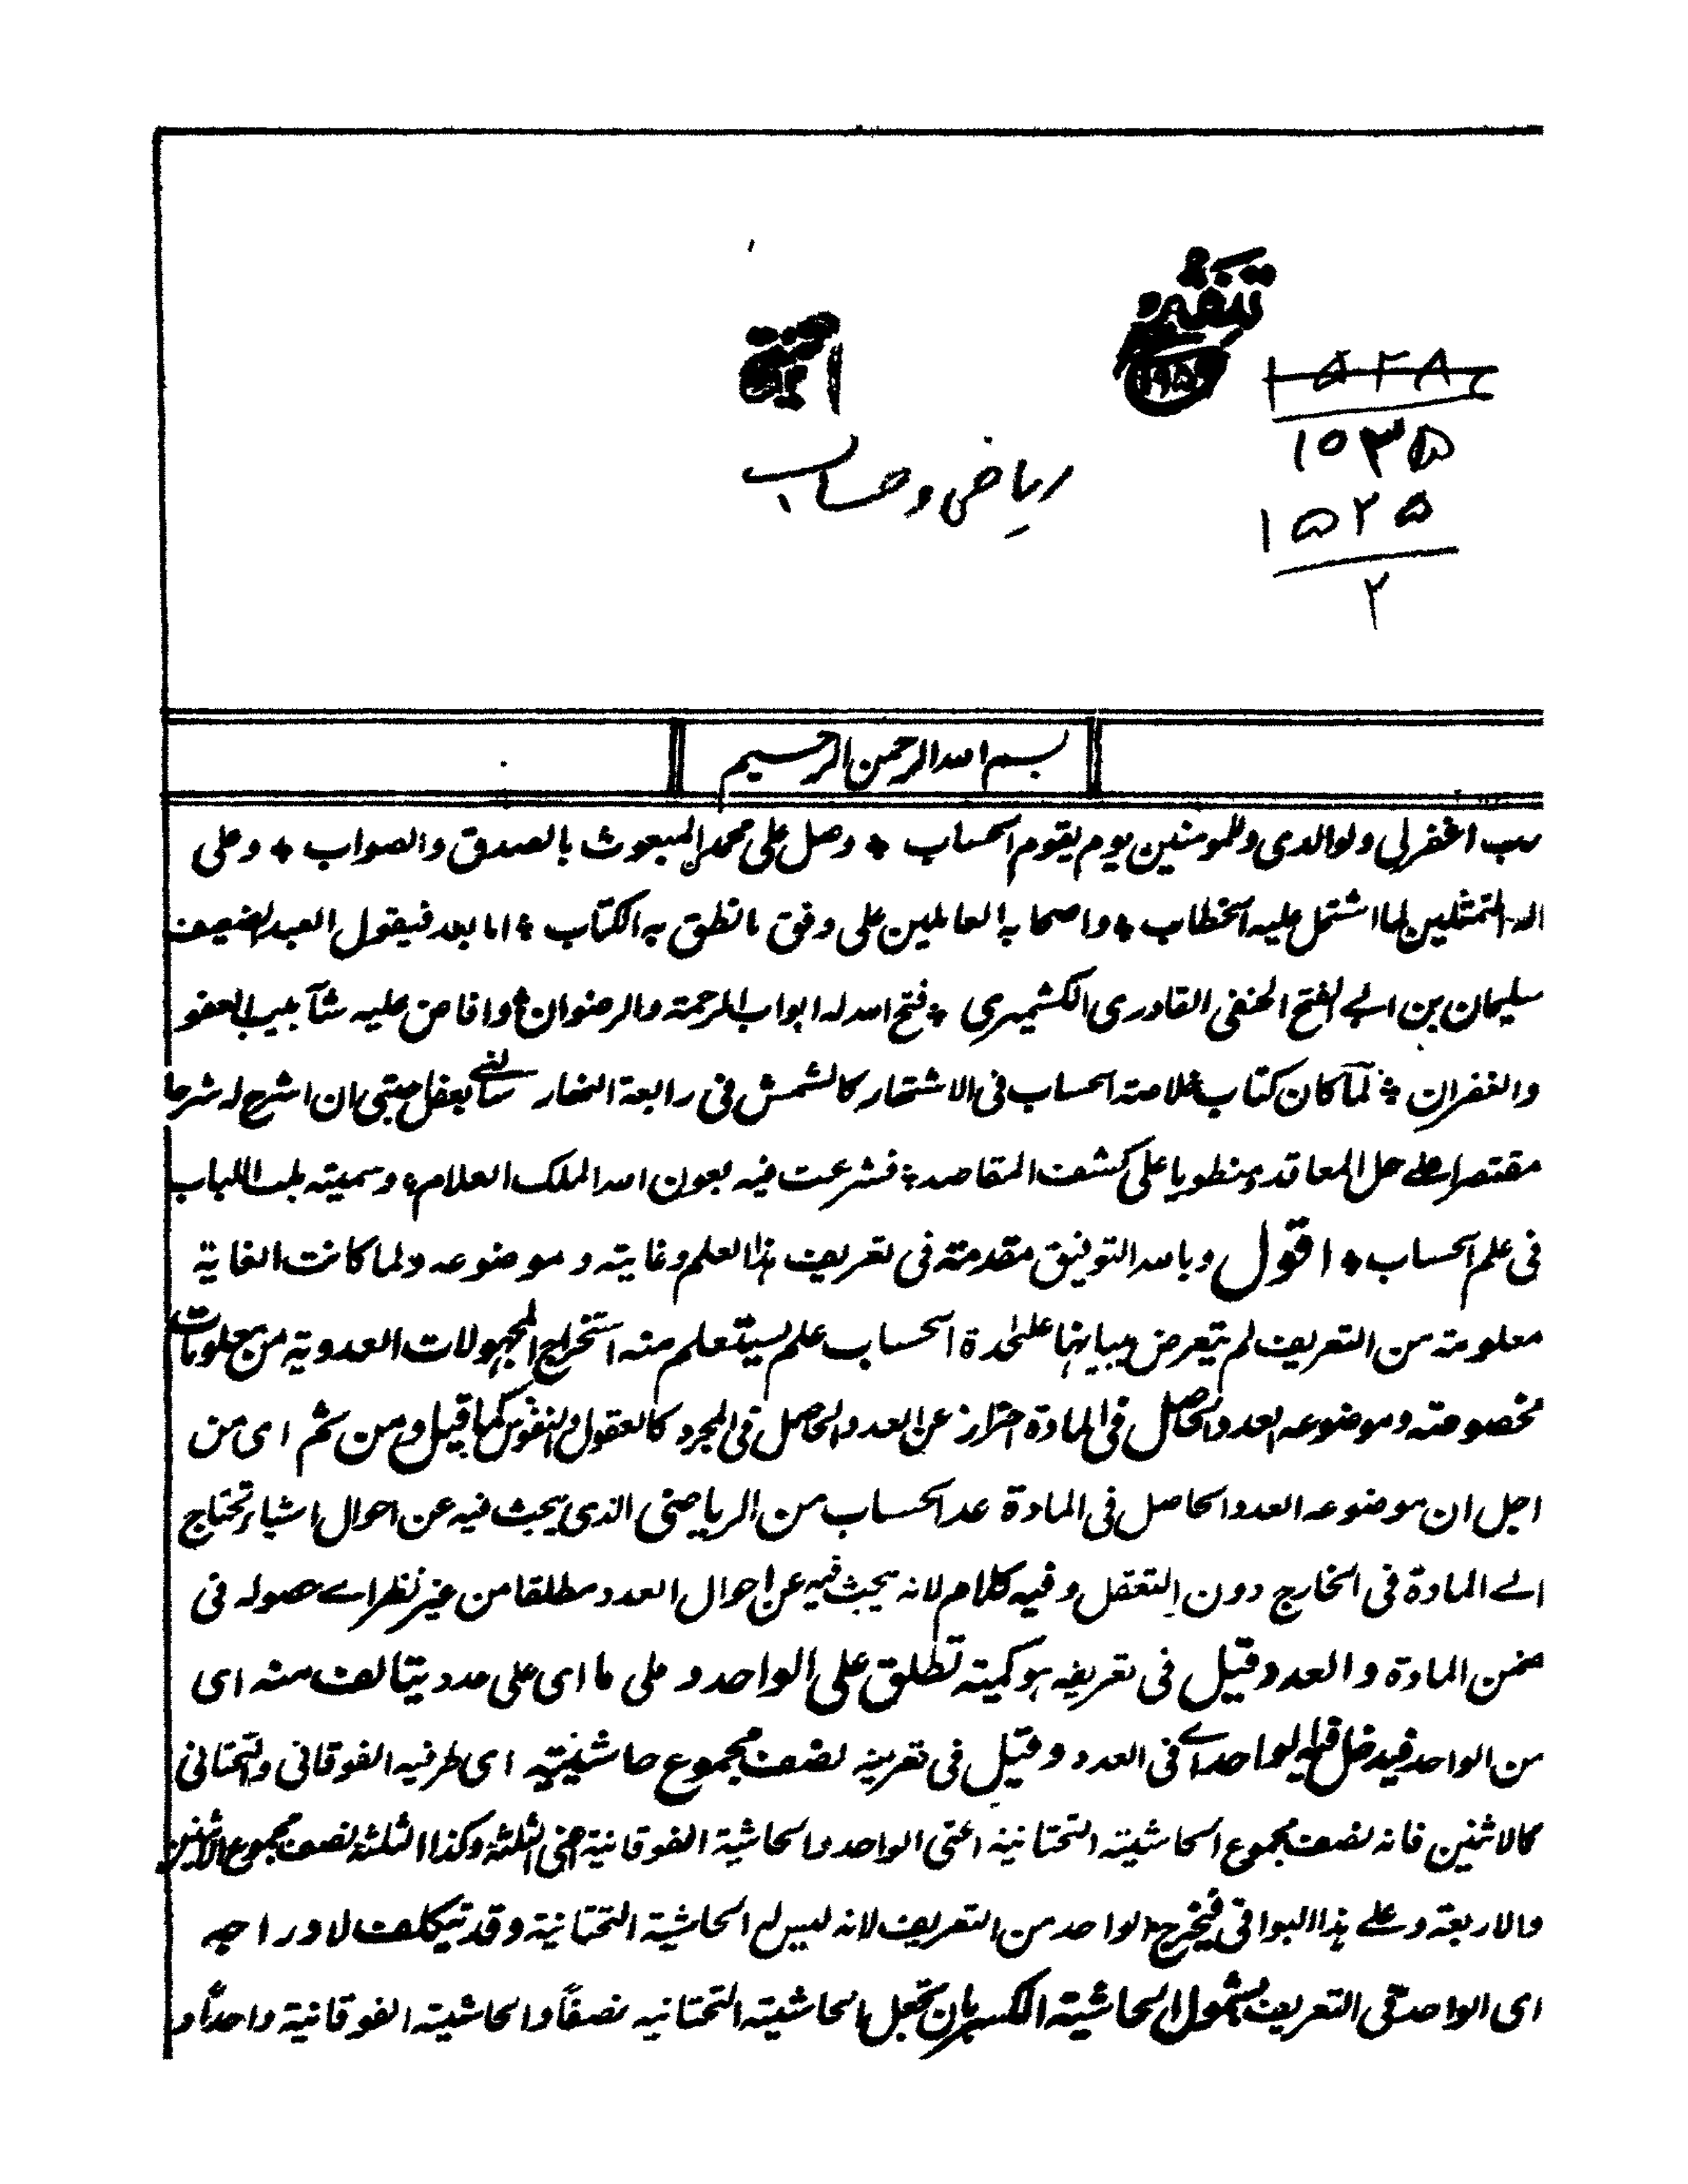 ۱۵۲۸
۱۵۳۵
۱۵۲۵
۲
ریاضی و حساب
بسم الله الرحمن الرحيم
رب اغفرلي ولوالدي وللمومنين يوم يقوم الحساب * وصل على محمد المبعوث بالصدق والصواب * وعلى
اله المتمثلين لما اشتمل عليه الخطاب * واصحابه العاملين على وفق ما نطق به الكتاب * اما بعد فيقول العبد الضعيف
سليمان بن ابي الفتح الحنفي القادري الكشميري * فتح الله له ابواب الرحمة والرضوان * وافاض عليه شآبيب العفو
والغفران * لما كان كتاب خلاصة الحساب في الاشتهار كالشمش في رابعة النهار سالني بعض احبتي ان اشرح له شرحا
مقتصرا على حل المعاقد * ومنطويا على كشف المقاصد * فشرعت فيه بعون الله الملك العلام * وسميته بلب اللباب
في علم الحساب * اقول وبالله التوفيق مقدمة في تعريف هذا العلم وغايته و موضوعه ولما كانت الغاية
معلومة من التعريف لم يتعرض ببيانها علىحدة الحساب علم يستعلم منه استخراج المجهولات العددية من معلومات
مخصوصة وموضوعه العدد الحاصل في المادة احتراز عن العدد الحاصل في المجرد كالعقول والنفوس كما قيل ومن ثم اى من
اجل ان موضوعه العدد الحاصل في المادة عد الحساب من الرياضى الذى يبحث فيه عن احوال اشياء تحتاج
الے المادة في الخارج دون التعقل وفيه كلام لانه يبحث فيه عن احوال العدد مطلقا من غير نظر الے حصوله في
ضمن المادة والعدد قيل في تعريفه هو كمية تطلق على الواحد و على ما اى على عدد يتالف منه اى
من الواحد فيدخل فيه الواحد اے في العدد وقيل في تعريفه نصف مجموع حاشيتيه اى طرفيه الفوقانى والتحتانى
كالاثنين فانه نصف مجموع الحاشية التحتانية اعنى الواحد والحاشية الفوقانية اعنى الثلثة وكذا الثلثة نصف مجموع الاثنين
والاربعة وعلے هذا البواقى فيخرج الواحد من التعريف لانه ليس له الحاشية التحتانية وقد يتكلف لادراجه
اى الواحد في التعريف بشمول الحاشية الكسر بان تجعل الحاشية التحتانيه نصفاً والحاشية الفوقانية واحداً و